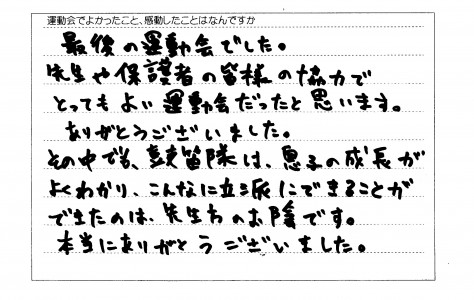 運動会でよかったこと、感動したことはなんですか
最後の運動会でした。
先生や保護者の皆様の協力で
とってもよい運動会だったと思います。
ありがとうございました。
その中でも、鼓笛隊は、息子の成長が
よくわかり、こんなに立派にできることが
できたのは、先生方のお陰です。
本当にありがとうございました。